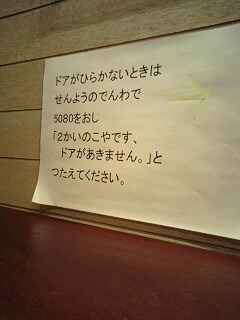 ドアがひらかないときは
せんようのでんわで
5080をおし
「2かいのこやです、
ドアがあきません。」と
つたえてください。